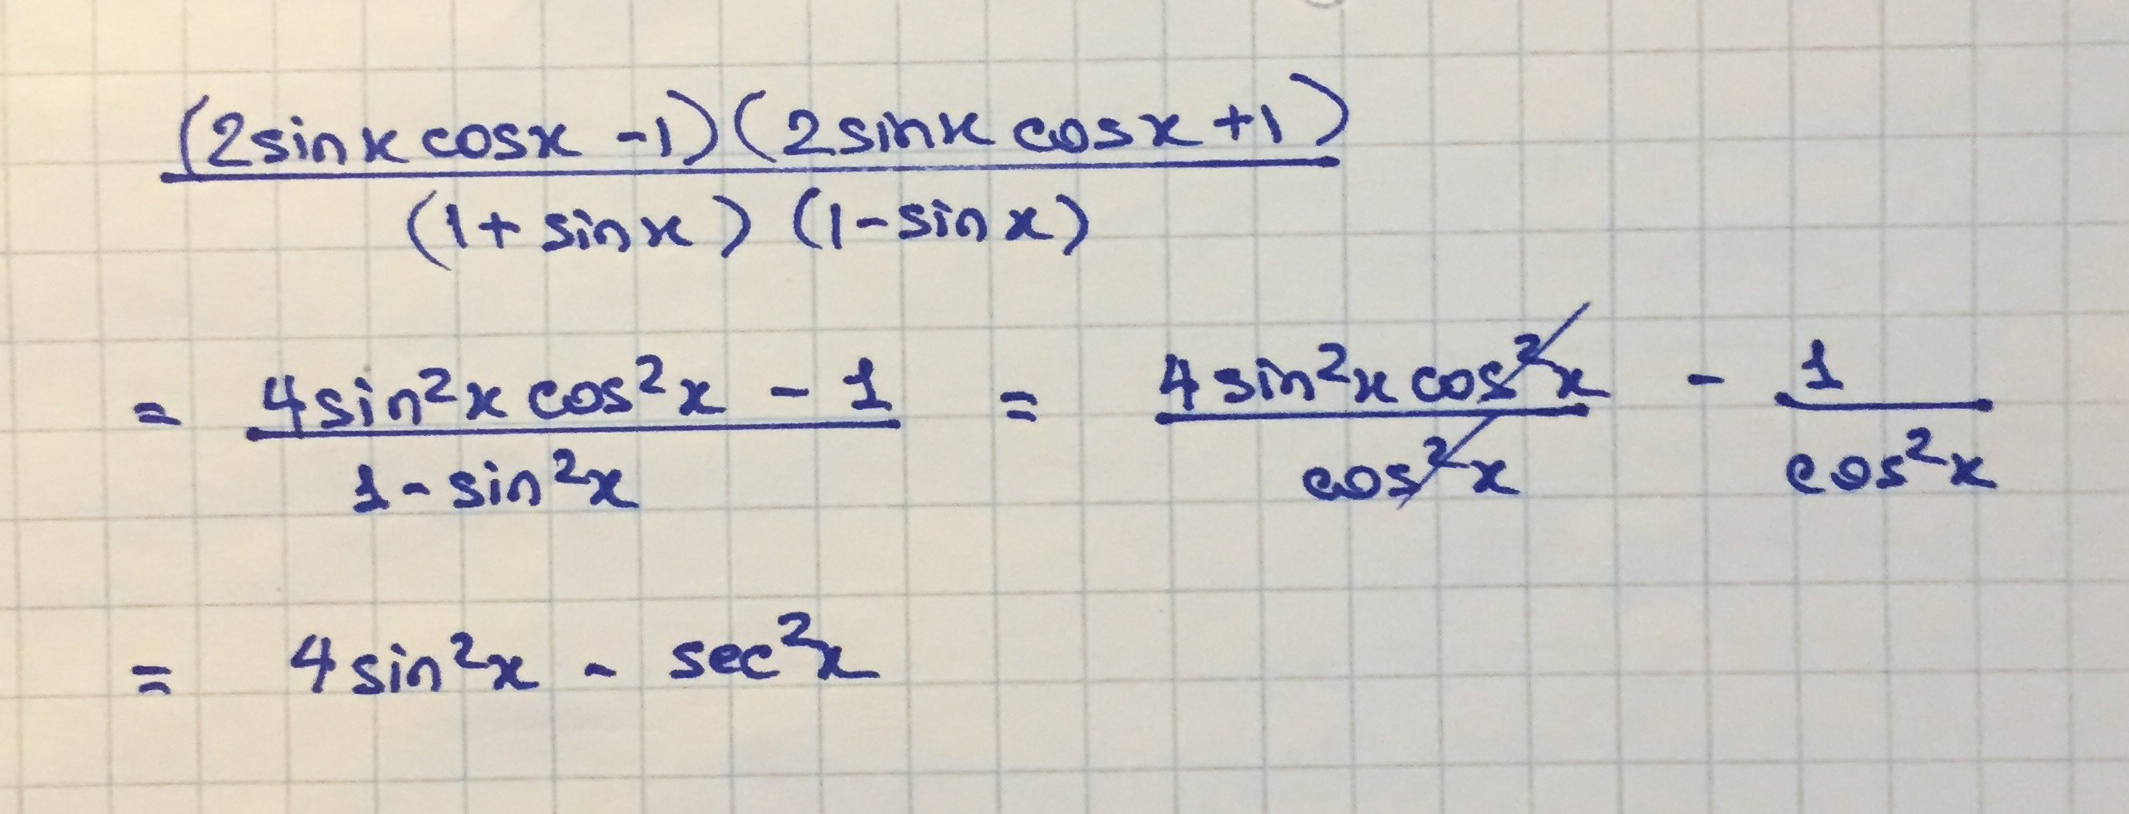 (2sinx cosx -1)(2sinx cosx +1)
(1+ sinx) (1-sinx)
= 4sin²x cos²x - 1 / 1 - sin²x = 4 sin²x cos²x / cos²x - 1 / cos²x
= 4sin²x - sec²x